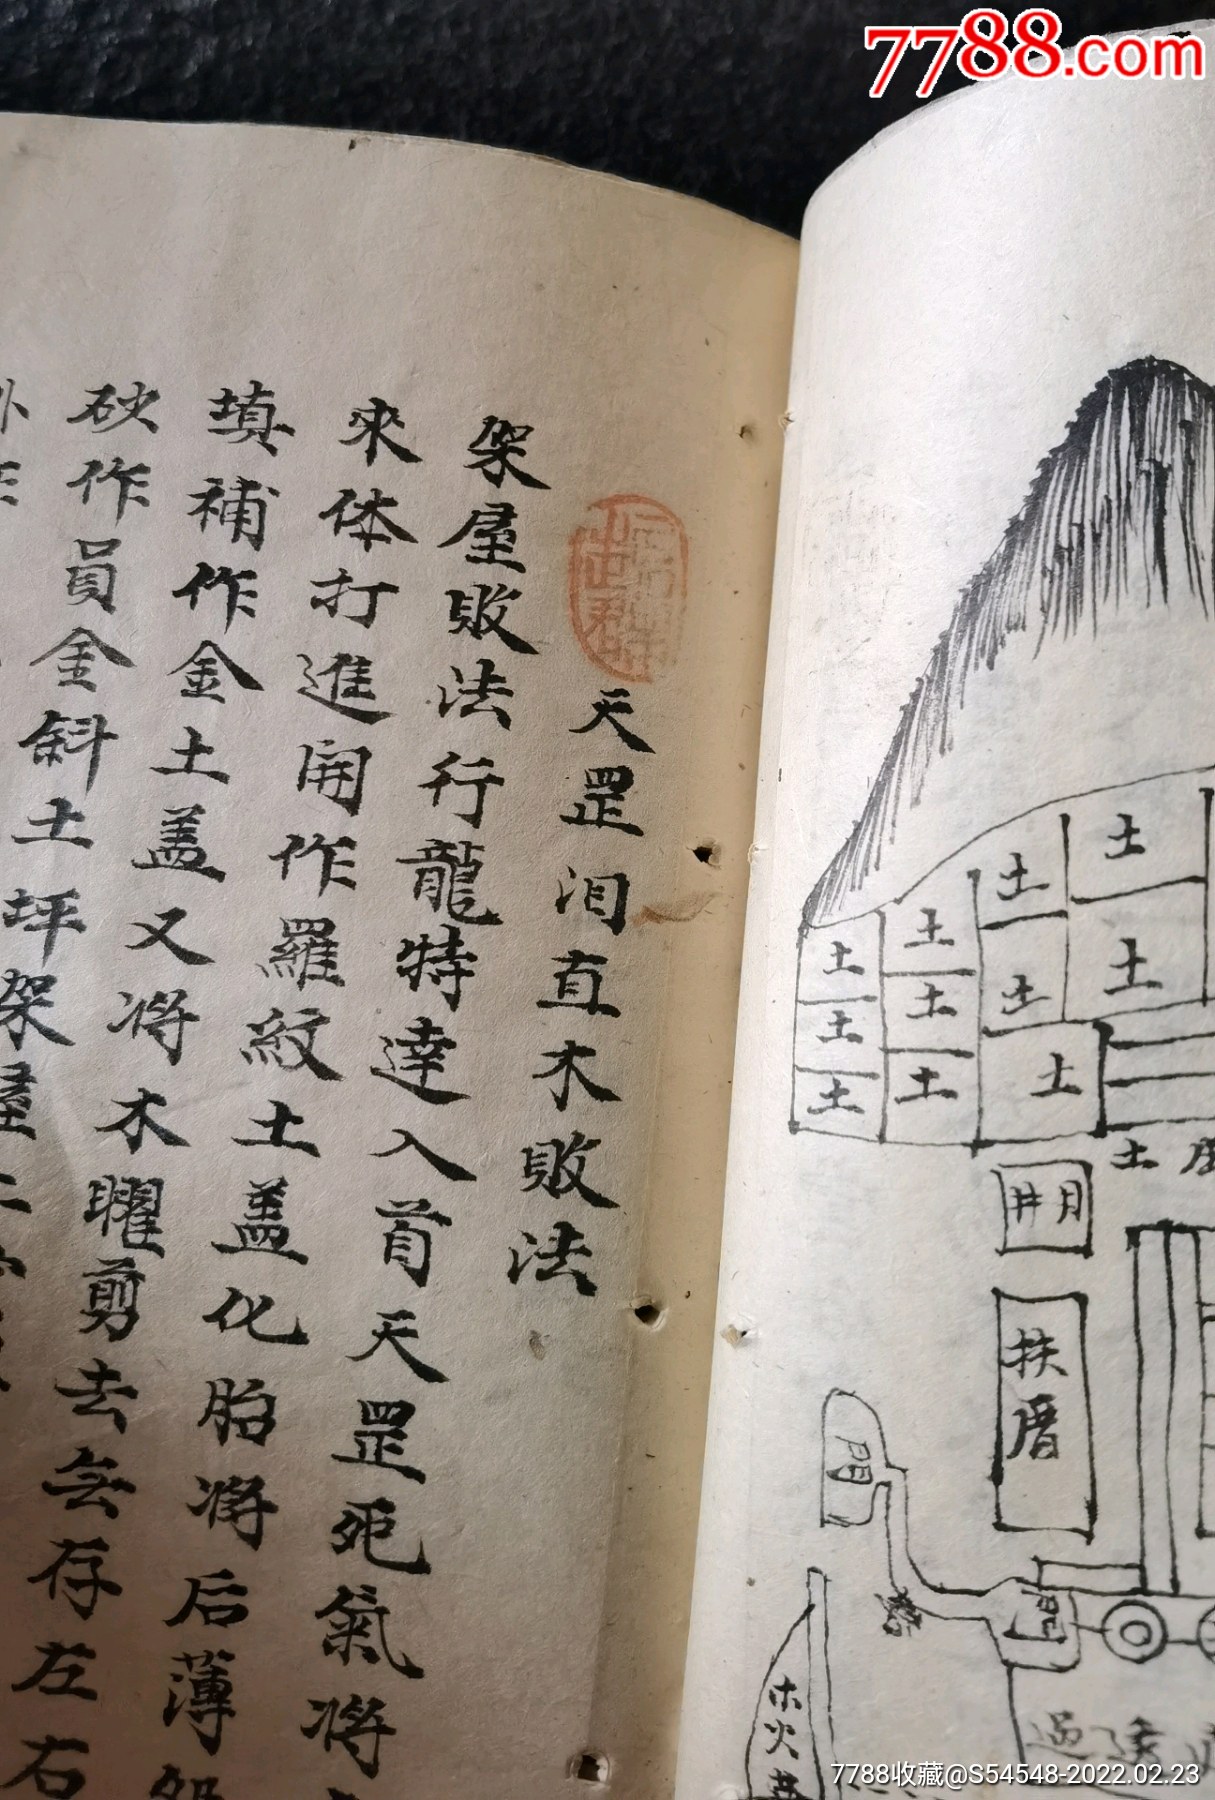 7788.com
天罡泪直木敗法
架屋敗法行龍特達入首天罡死氣将
來体打進開作羅紋土盖化胎将后薄
填補作金土盖又将木曜剪去無存左右
砍作員金斜土坪架屋
土
土
土
土
土
土
土
土
土
土
土
土
井月
扶厝
門
木火
7788收藏@S54548-2022.02.23